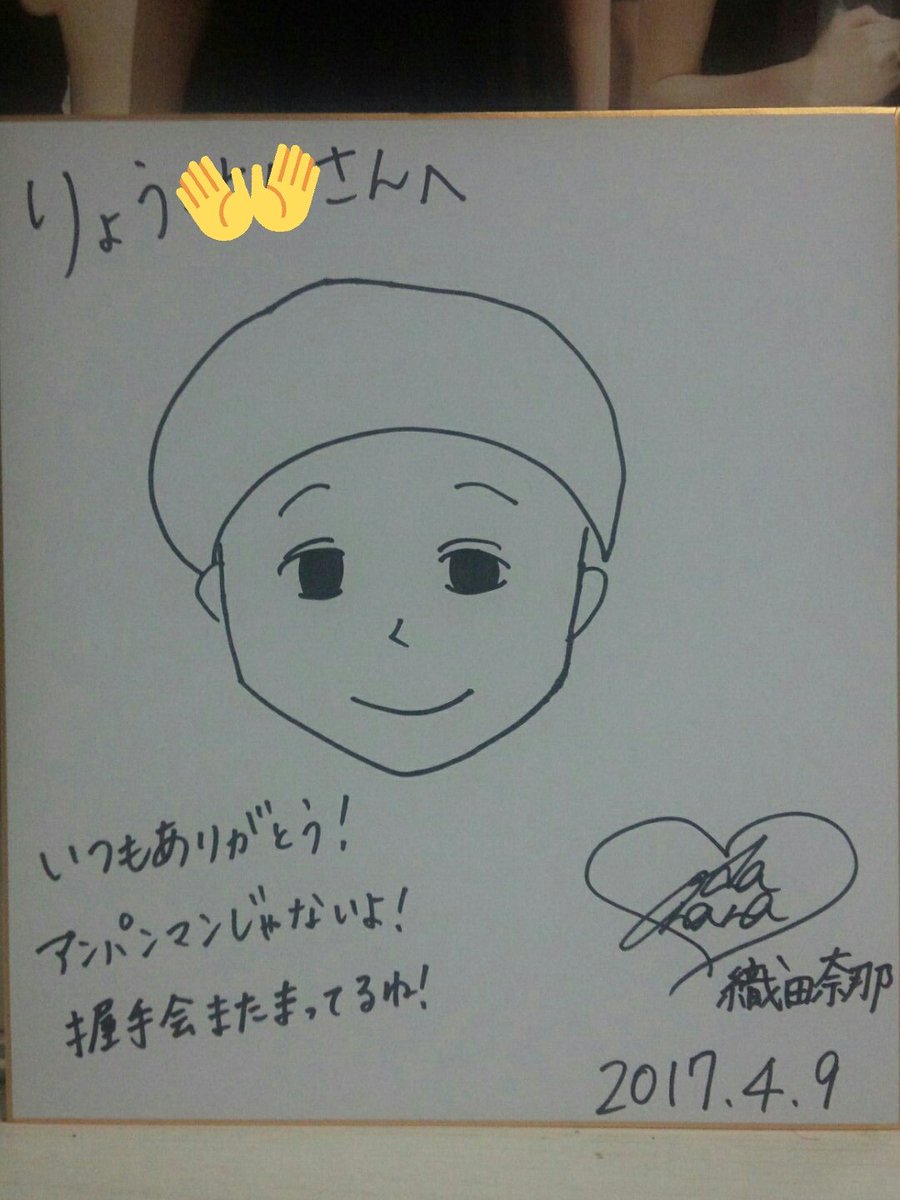 りょう さんへ
いつもありがとう!
アンパンマンじゃないよ!
握手会またまってるね!
Oda
Nana
織田奈那
2017.4.9